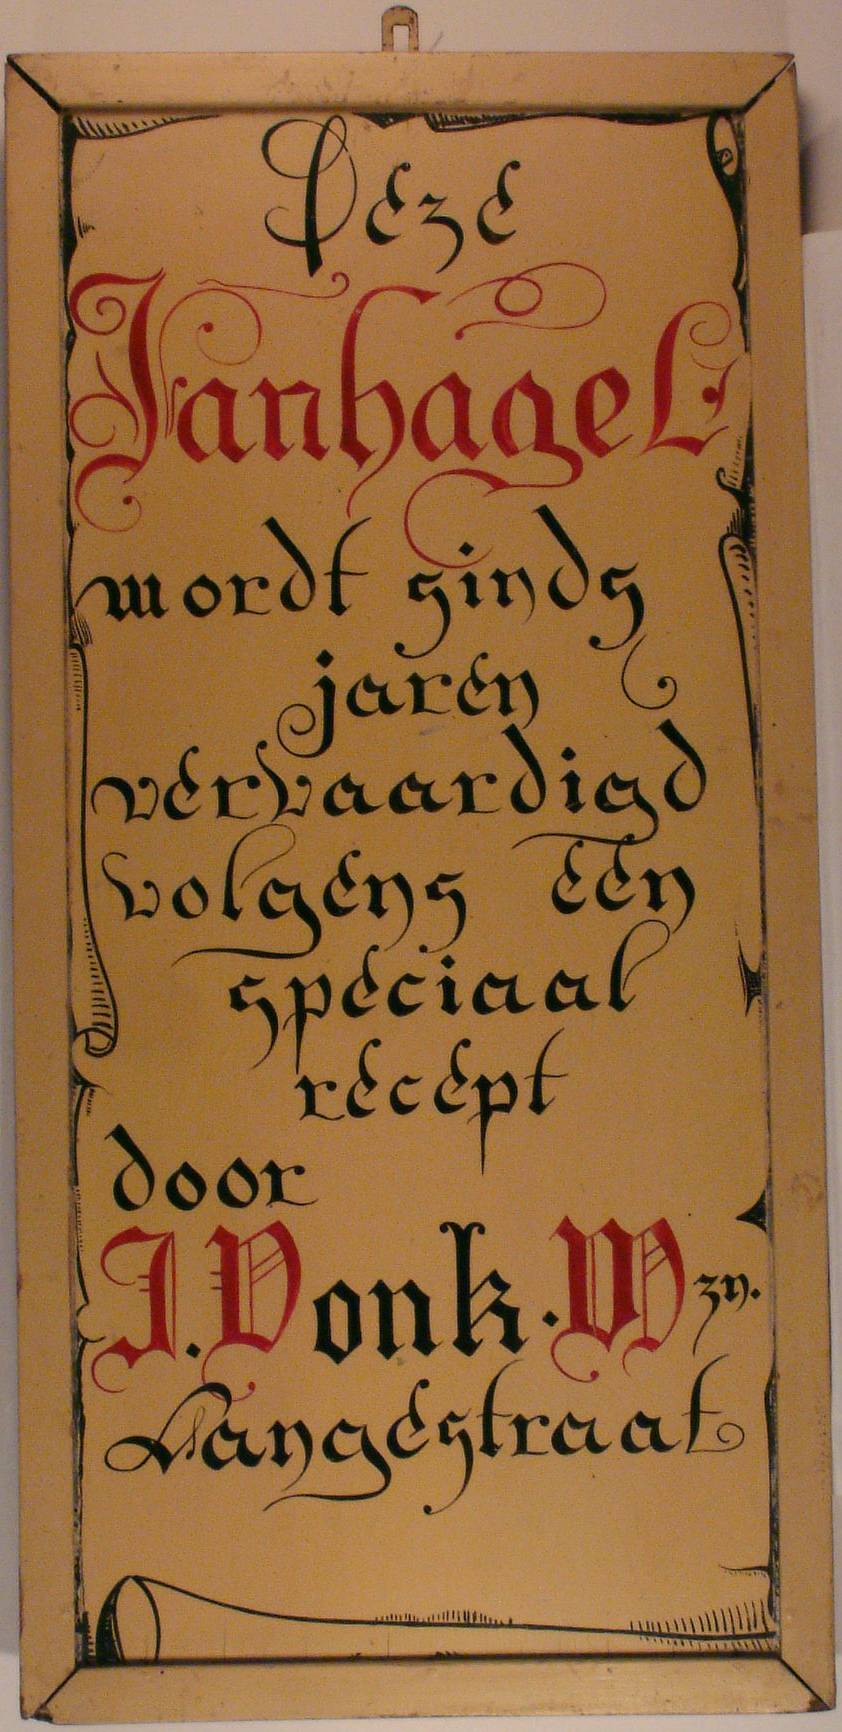 Deze
Janhagel
wordt sinds
jaren
vervaardigd
volgens een
speciaal
recept
door
J. Vonk. Wzn.
Langestraat